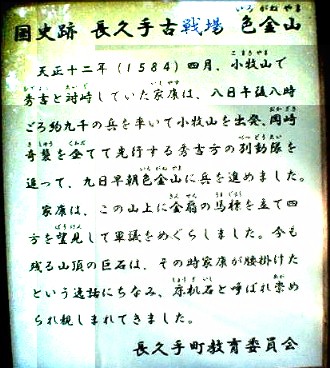 国史跡 長久手古戦場 色金山
天正十二年（1584）四月、小牧山で
秀吉と対峙していた家康は、八日午後八時
ごろ約九千の兵を率いて小牧山を出発、岡崎
奇襲を企てて先行する秀吉方の別動隊を
追って、九日早朝色金山に兵を進めました。
家康は、この山上に金扇の馬標を立て四
方を望見して軍議をめぐらしました。今も
残る山頂の巨石は、その時家康が腰掛けた
という逸話にちなみ、床机石と呼ばれ崇め
られ親しまれてきました。
長久手町教育委員会